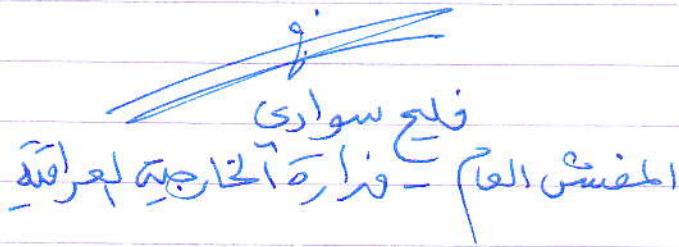 فليح سوادي
المفتش العام - وزارة الخارجية العراقية